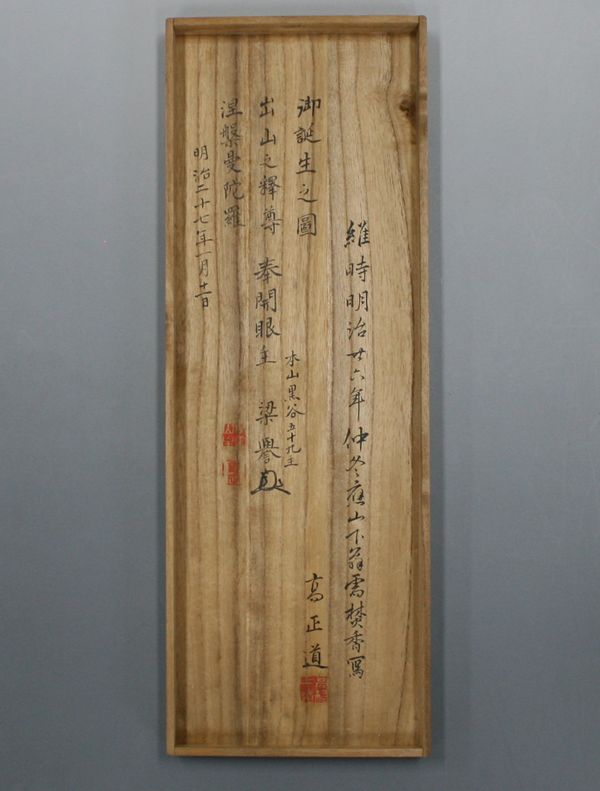 維時明治廿六年仲冬應山下翁需焚香寫
高正道
御誕生之圖
出山之釋尊
涅槃曼陀羅
奉開眼主 梁譽
本山黒谷五十九主
明治二十七年一月十一日